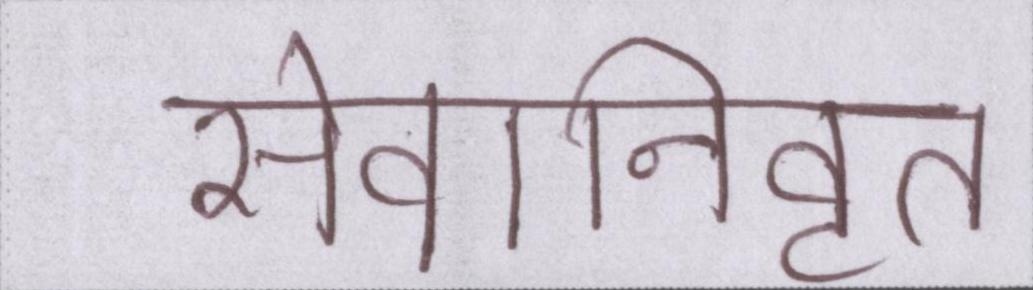 सेवानिवृत